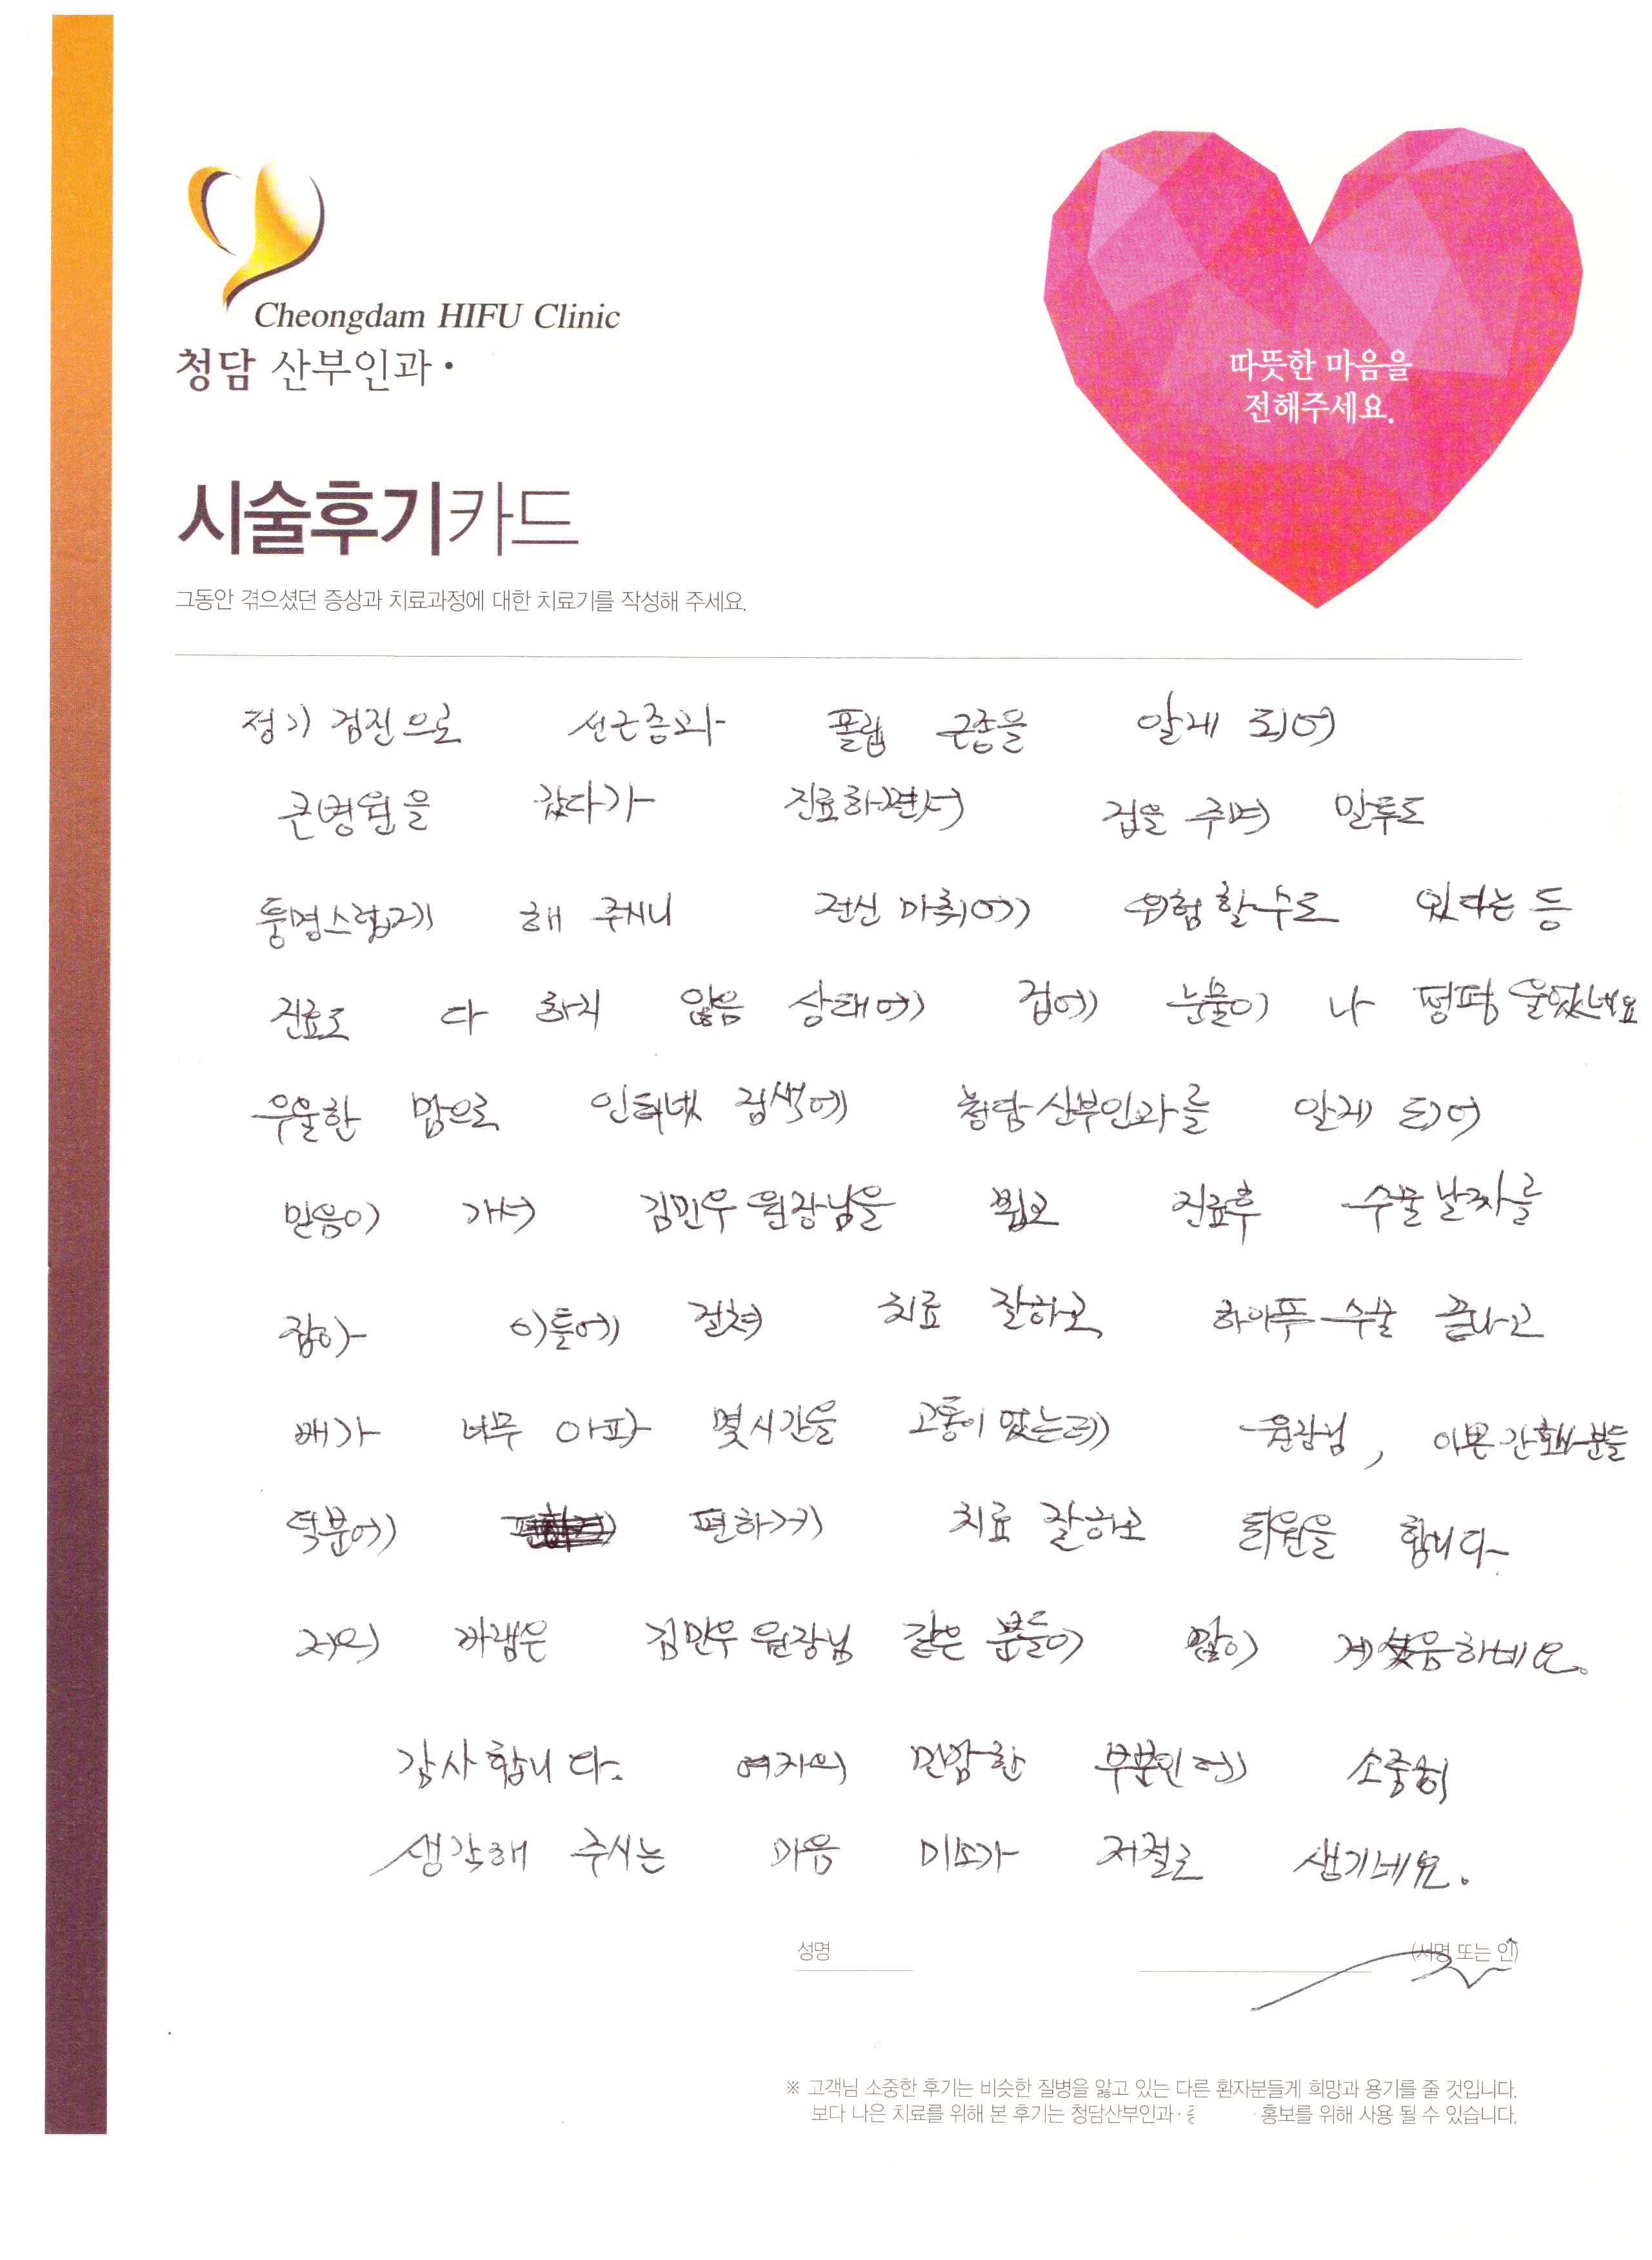 Cheongdam HIFU Clinic
청담 산부인과·
따뜻한 마음을
전해주세요.
시술후기카드
그동안 겪으셨던 증상과 치료과정에 대한 치료기를 작성해 주세요.
정기 검진으로 선근증과 폴립 근종을 알게 되어
큰병원을 갔다가 진료하면서 겁을 주며 말투도
퉁명스럽게 해 주시니 전신 마취에 위험할수도 있다는 등
진료도 다 하지 않음 상태에 겁에 눈물이 나 펑펑 울었네요
우울한 맘으로 인터넷 검색에 청담산부인과를 알게 되어
믿음이 가서 김민우 원장님을 뵙고 진료후 수술날짜를
잡아 이틀에 걸쳐 치료 잘하고 하이푸 수술 끝나고
배가 너무 아파 몇시간을 고통이 왔는데 원장님, 이쁜간호사분들
덕분에 편하게 치료 잘하고 퇴원을 합니다
저의 바램은 김민우 원장님 같은 분들이 많이 계셨음하네요.
감사합니다. 여자의 민감한 부분인데 소중히
생각해 주시는 마음 미소가 저절로 생기네요.
성명 (서명 또는 인)
※ 고객님 소중한 후기는 비슷한 질병을 앓고 있는 다른 환자분들게 희망과 용기를 줄 것입니다.
보다 나은 치료를 위해 본 후기는 청담산부인과· 홍보를 위해 사용 될 수 있습니다.